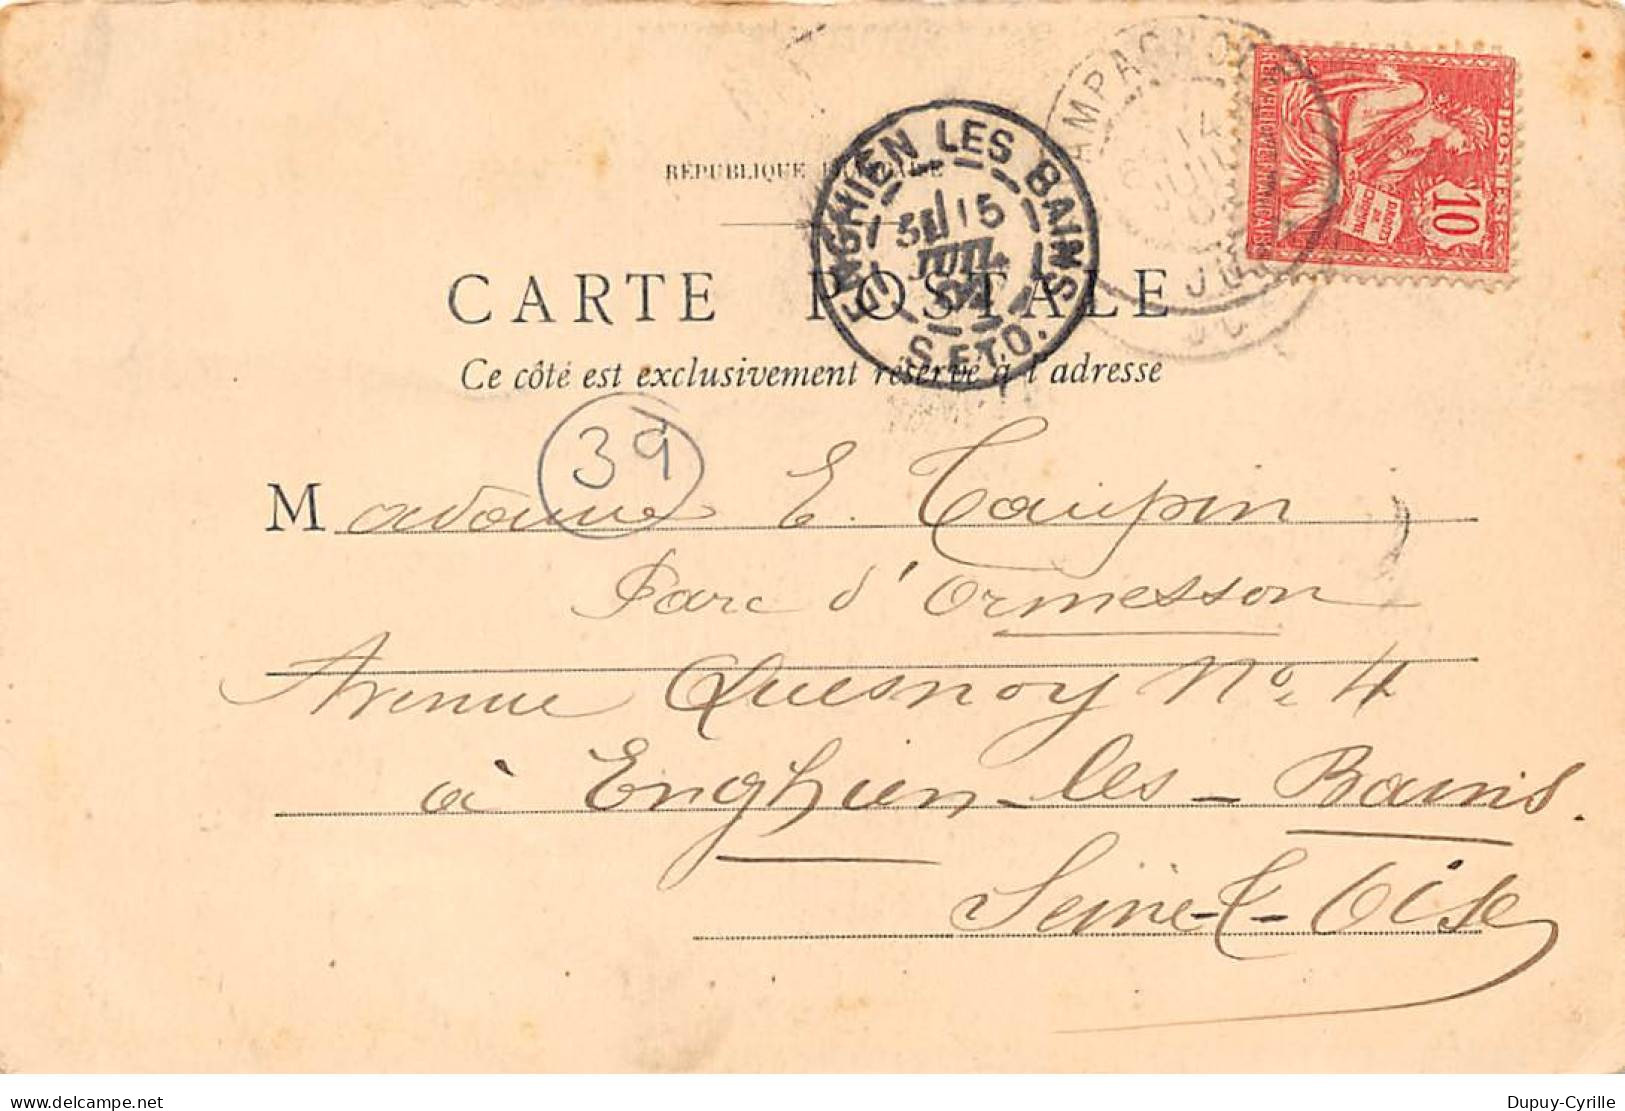 RÉPUBLIQUE FRANÇAISE
CARTE POSTALE
Ce côté est exclusivement réservé à l'adresse
ENGHIEN LES BAINS
5E 15
JUIL
04
S.ET.O.
AMPAGNO
14
JUIL
JU
REPUBLIQUE FRANÇAISE
POSTES
10
DROITS
DE
L'HOMME
39
Madame E. Taupin
Parc d'Ormesson
Avenue Quesnoy No 4
à Enghien-les-Bains.
Seine-&-Oise
delcampe.net
Dupuy-Cyrille